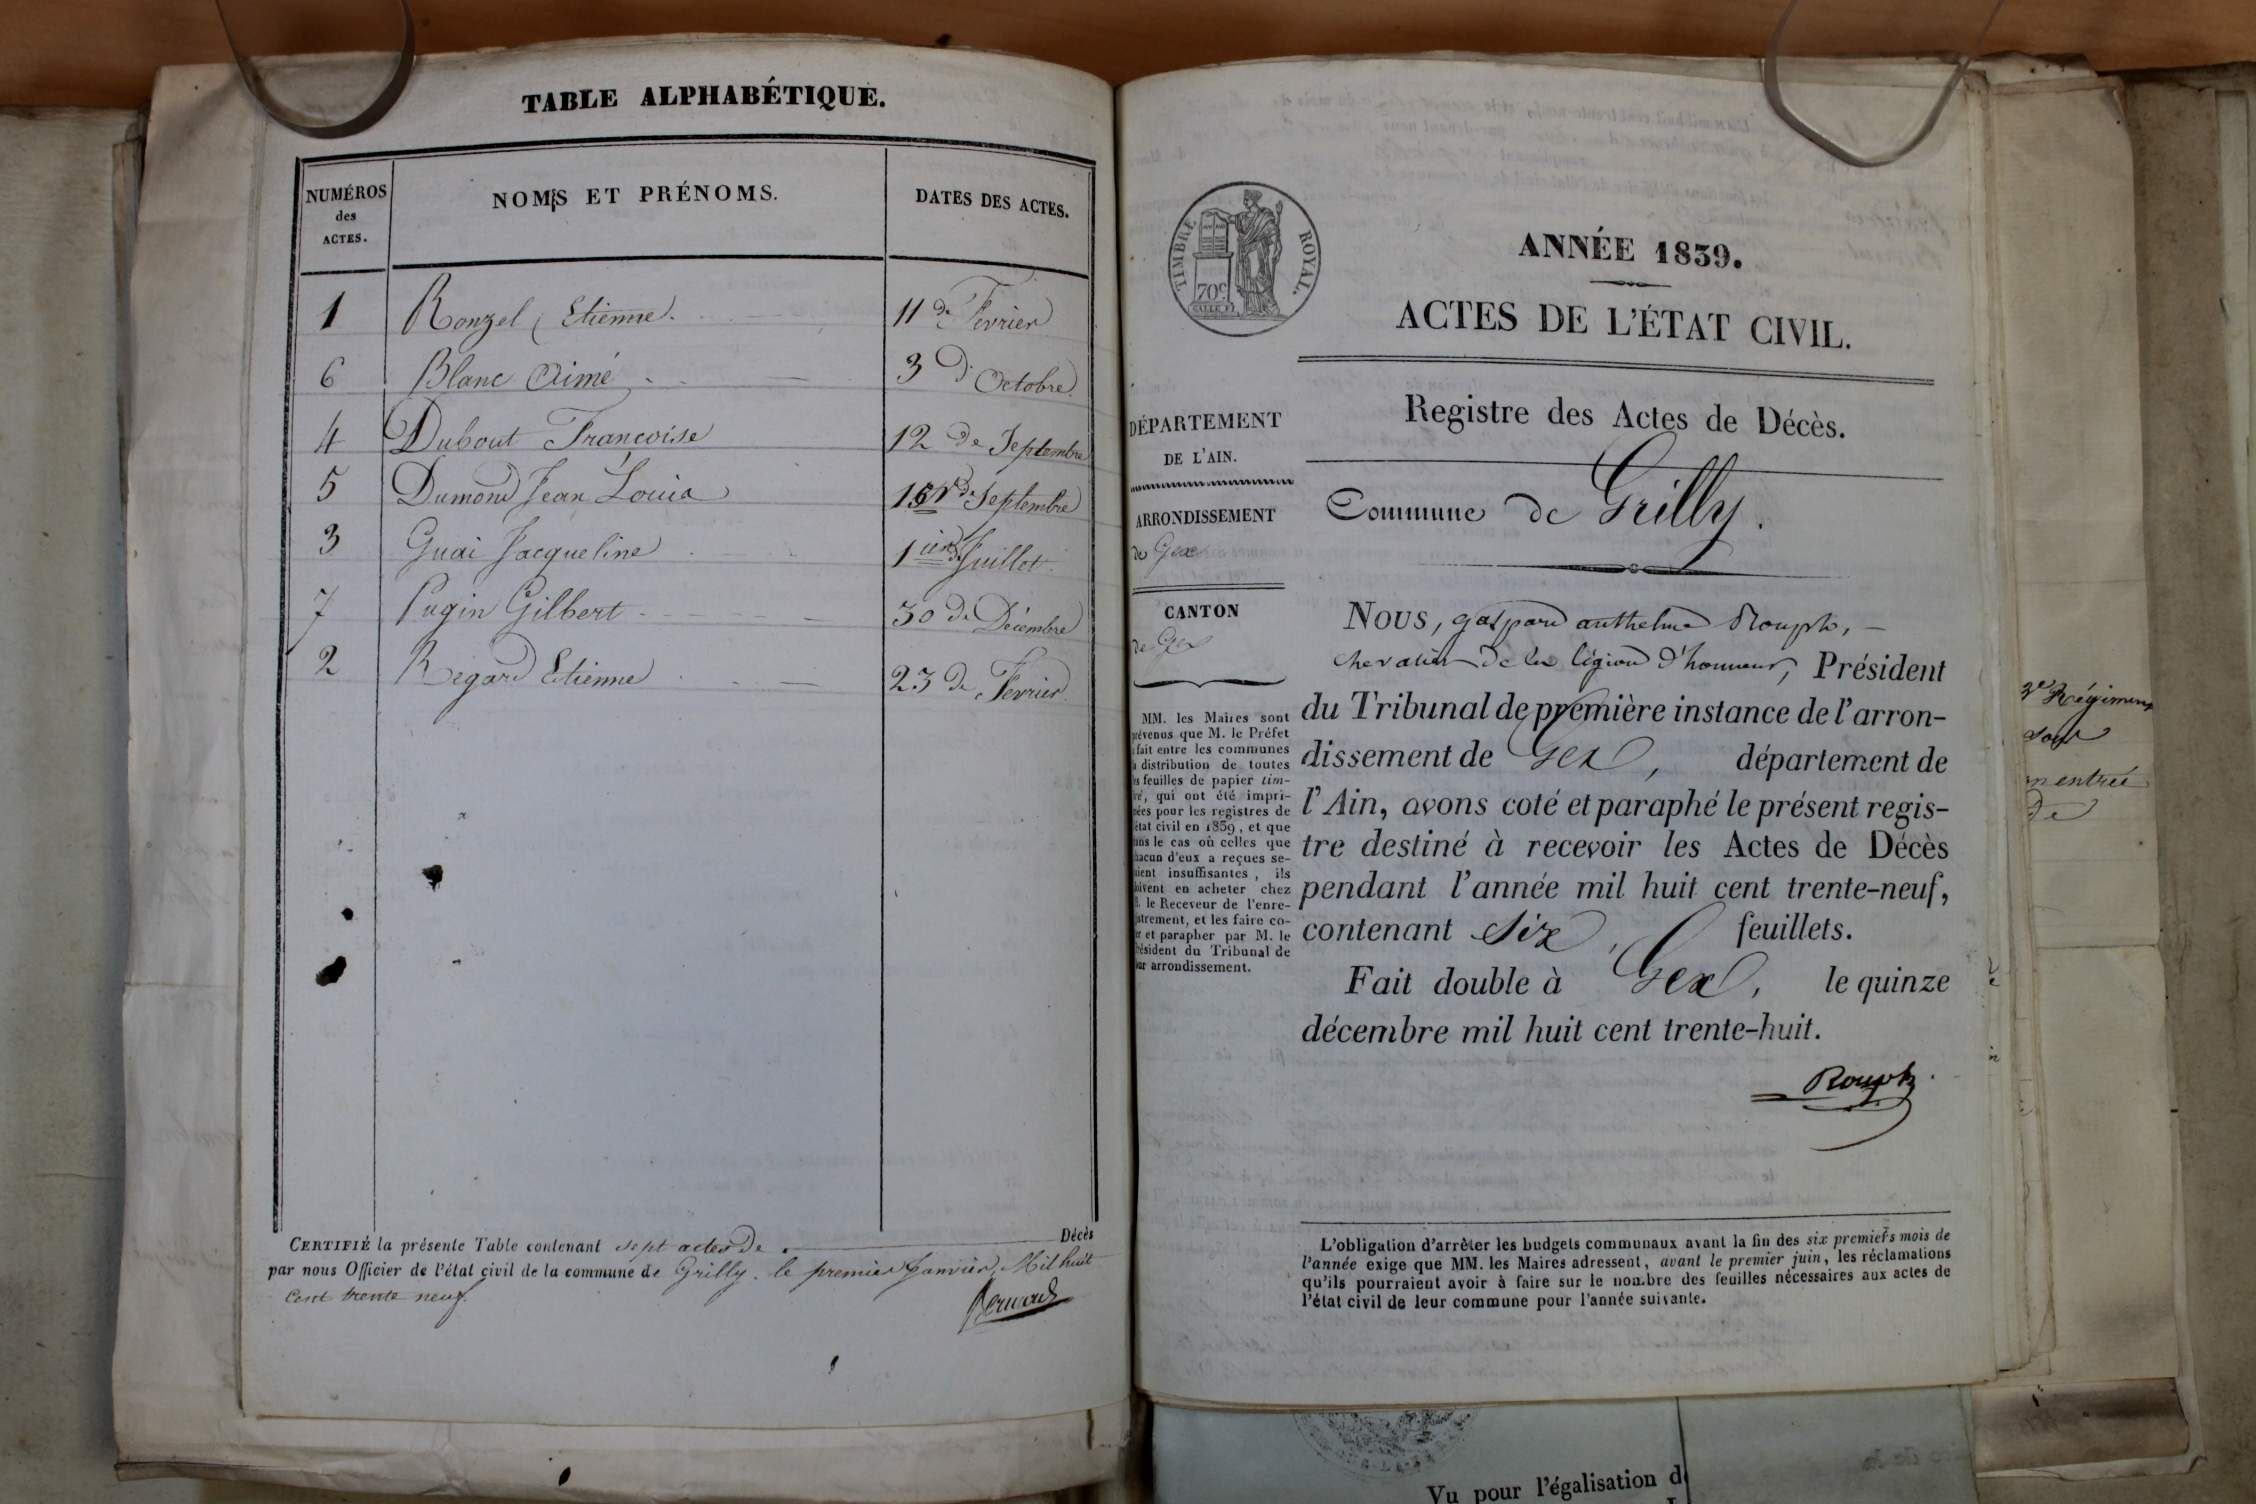 TABLE ALPHABÉTIQUE.
NUMÉROS des ACTES. NOMS ET PRÉNOMS. DATES DES ACTES.
1 Ronzel Etienne. 11 de Fevrier
6 Blanc Aimé 3 d' Octobre
4 Dubout Francoise 12 de Septembre
5 Dumond Jean Louis 15 de Septembre
3 Guai Jacqueline 1ier de Juillet
7 Pugin Gilbert 30 de Décembre
2 Regard Etienne 23 de Fevrier
CERTIFIÉ la présente Table contenant sept actes de Décès
par nous Officier de l'état civil de la commune de Grilly. le premier Janvier, Mil huit
Cent trente neuf.
TIMBRE ROYAL.
70c
ANNÉE 1839.
ACTES DE L'ÉTAT CIVIL.
Registre des Actes de Décès.
Commune de Grilly.
DÉPARTEMENT
DE L'AIN.
ARRONDISSEMENT
de Gex
CANTON
de Gex
MM. les Maires sont
prévenus que M. le Préfet
a fait entre les communes
la distribution de toutes
les feuilles de papier tim-
bré, qui ont été impri-
mées pour les registres de
l'état civil en 1839, et que
dans le cas où celles que
chacun d'eux a reçues se-
raient insuffisantes, ils
doivent en acheter chez
M. le Receveur de l'enre-
gistrement, et les faire co-
ter et parapher par M. le
Président du Tribunal de
leur arrondissement.
NOUS, gaspard anthelme Rouph,
chevalier de la légion d'honneur, Président
du Tribunal de première instance de l'arron-
dissement de Gex, département de
l'Ain, avons coté et paraphé le présent regis-
tre destiné à recevoir les Actes de Décès
pendant l'année mil huit cent trente-neuf,
contenant six, feuillets.
Fait double à Gex, le quinze
décembre mil huit cent trente-huit.
Rouph
L'obligation d'arrêter les budgets communaux avant la fin des six premiers mois de
l'année exige que MM. les Maires adressent, avant le premier juin, les réclamations
qu'ils pourraient avoir à faire sur le nombre des feuilles nécessaires aux actes de
l'état civil de leur commune pour l'année suivante.
Régiment
entrée
de
Vu pour l'égalisation d